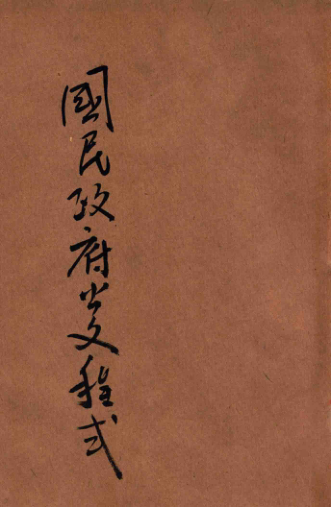 國民政府公文程式